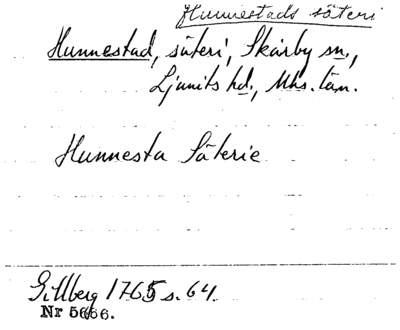 Hunnestads säteri
Hunnestad, säteri, Skårby sn.,
Ljunits hd., Mhs. län.
Hunnesta Säterie
Gillberg 1765 s. 64.
Nr 5666.